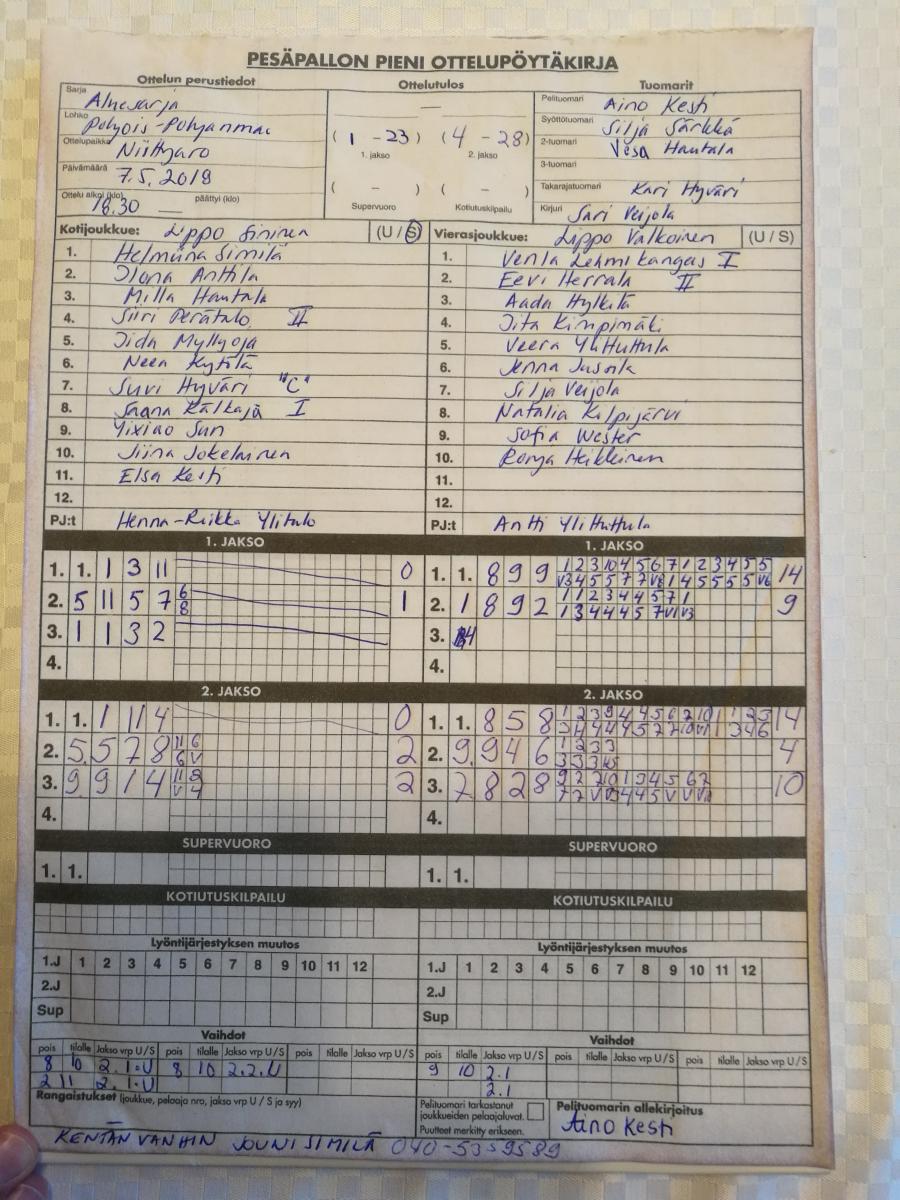 PESÄPALLON PIENI OTTELUPÖYTÄKIRJA
Ottelun perustiedot Ottelutulos Tuomarit
Sarja Aluesarja
Lohko Pohjois-Pohjanmaa
Ottelupaikka
Päivämäärä 7.5.2018
Ottelu alkoi (klo) 18.30 — päättyi (klo)
—
(1 - 23) (4 - 28)
1. jakso 2. jakso
( - ) ( - )
Supervuoro Kotiutuskilpailu
Pelituomari Aino Kesti
Syöttötuomari Silja Särkkä
2-tuomari Vesa Hautala
3-tuomari
Takarajatuomari Kari Hyväri
Kirjuri Sari Veijola
Kotijoukkue: Lippo Sininen (U/S)
1. Helmiina Similä
2. Ilona Anttila
3. Milla Hautala
4. Siiri Perätalo II
5. Iida Myllyoja
6. Neea Kytölä
7. Suvi Hyväri "C"
8. Saana Kälkäjä I
9. Yixiao Sun
10. Jiina Jokelainen
11. Elsa Kesti
12.
PJ:t Henna-Riikka Ylitalo
Vierasjoukkue: Lippo Valkoinen (U/S)
1. Venla Lehmikangas I
2. Eevi Herrala II
3. Aada Hylkilä
4. Iita Kinpimäki
5. Veera Ylituttula
6. Jenna Jussila
7. Silja Veijola
8. Natalia Kilpijärvi
9. Sofia Wester
10. Ronja Heikkinen
11.
12.
PJ:t Antti Ylituttula
1. JAKSO
1. 1. 1 3 11 0
2. 5 11 5 7 6 8 1
3. 1 1 3 2
4.
1. JAKSO
1. 1. 8 9 9 1 2 3 10 4 5 6 7 1 2 3 4 5 5 14
2. 1 8 9 2 1 1 2 3 4 4 5 7 1 9
3.
4.
2. JAKSO
1. 1. 1 11 4 0
2. 5 5 7 8 11 6 2
6 V
3. 9 9 1 4 2
4.
2. JAKSO
1. 1. 8 5 8 14
2. 9 9 4 6 1 2 3 3 4
3. 7 8 2 8 10
4.
SUPERVUORO
1. 1.
SUPERVUORO
1. 1.
KOTIUTUSKILPAILU
KOTIUTUSKILPAILU
Lyöntijärjestyksen muutos
1.J 1 2 3 4 5 6 7 8 9 10 11 12
2.J
Sup
Lyöntijärjestyksen muutos
1.J 1 2 3 4 5 6 7 8 9 10 11 12
2.J
Sup
Vaihdot
pois tilalle Jakso vrp U/S pois tilalle Jakso vrp U/S pois tilalle Jakso vrp U/S
8 10 2.1.U 8 10 2.2.U
2 11 2.1.U
Vaihdot
pois tilalle Jakso vrp U/S pois tilalle Jakso vrp U/S pois tilalle Jakso vrp U/S
9 10 2.1
2.1
Rangaistukset (joukkue, pelaaja nro, jakso vrp U/S ja syy)
Pelituomari tarkastanut
joukkueiden pelaajaluvat.
Puutteet merkitty erikseen.
Pelituomarin allekirjoitus
Aino Kesti
KENTÄN VANHIN JOUNI SIMILÄ 040-5359589